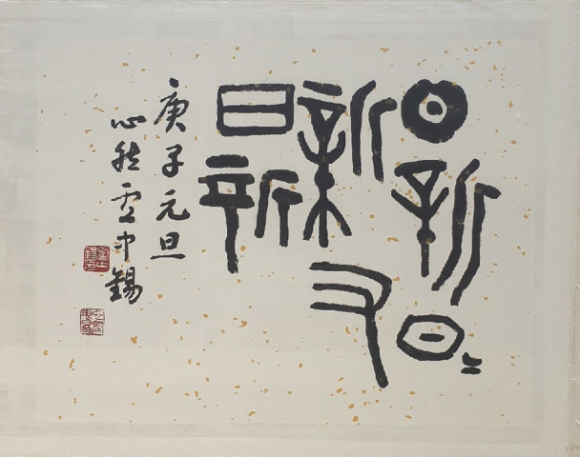 日新日〻
新又
日新
庚子元旦
心然盧中錫